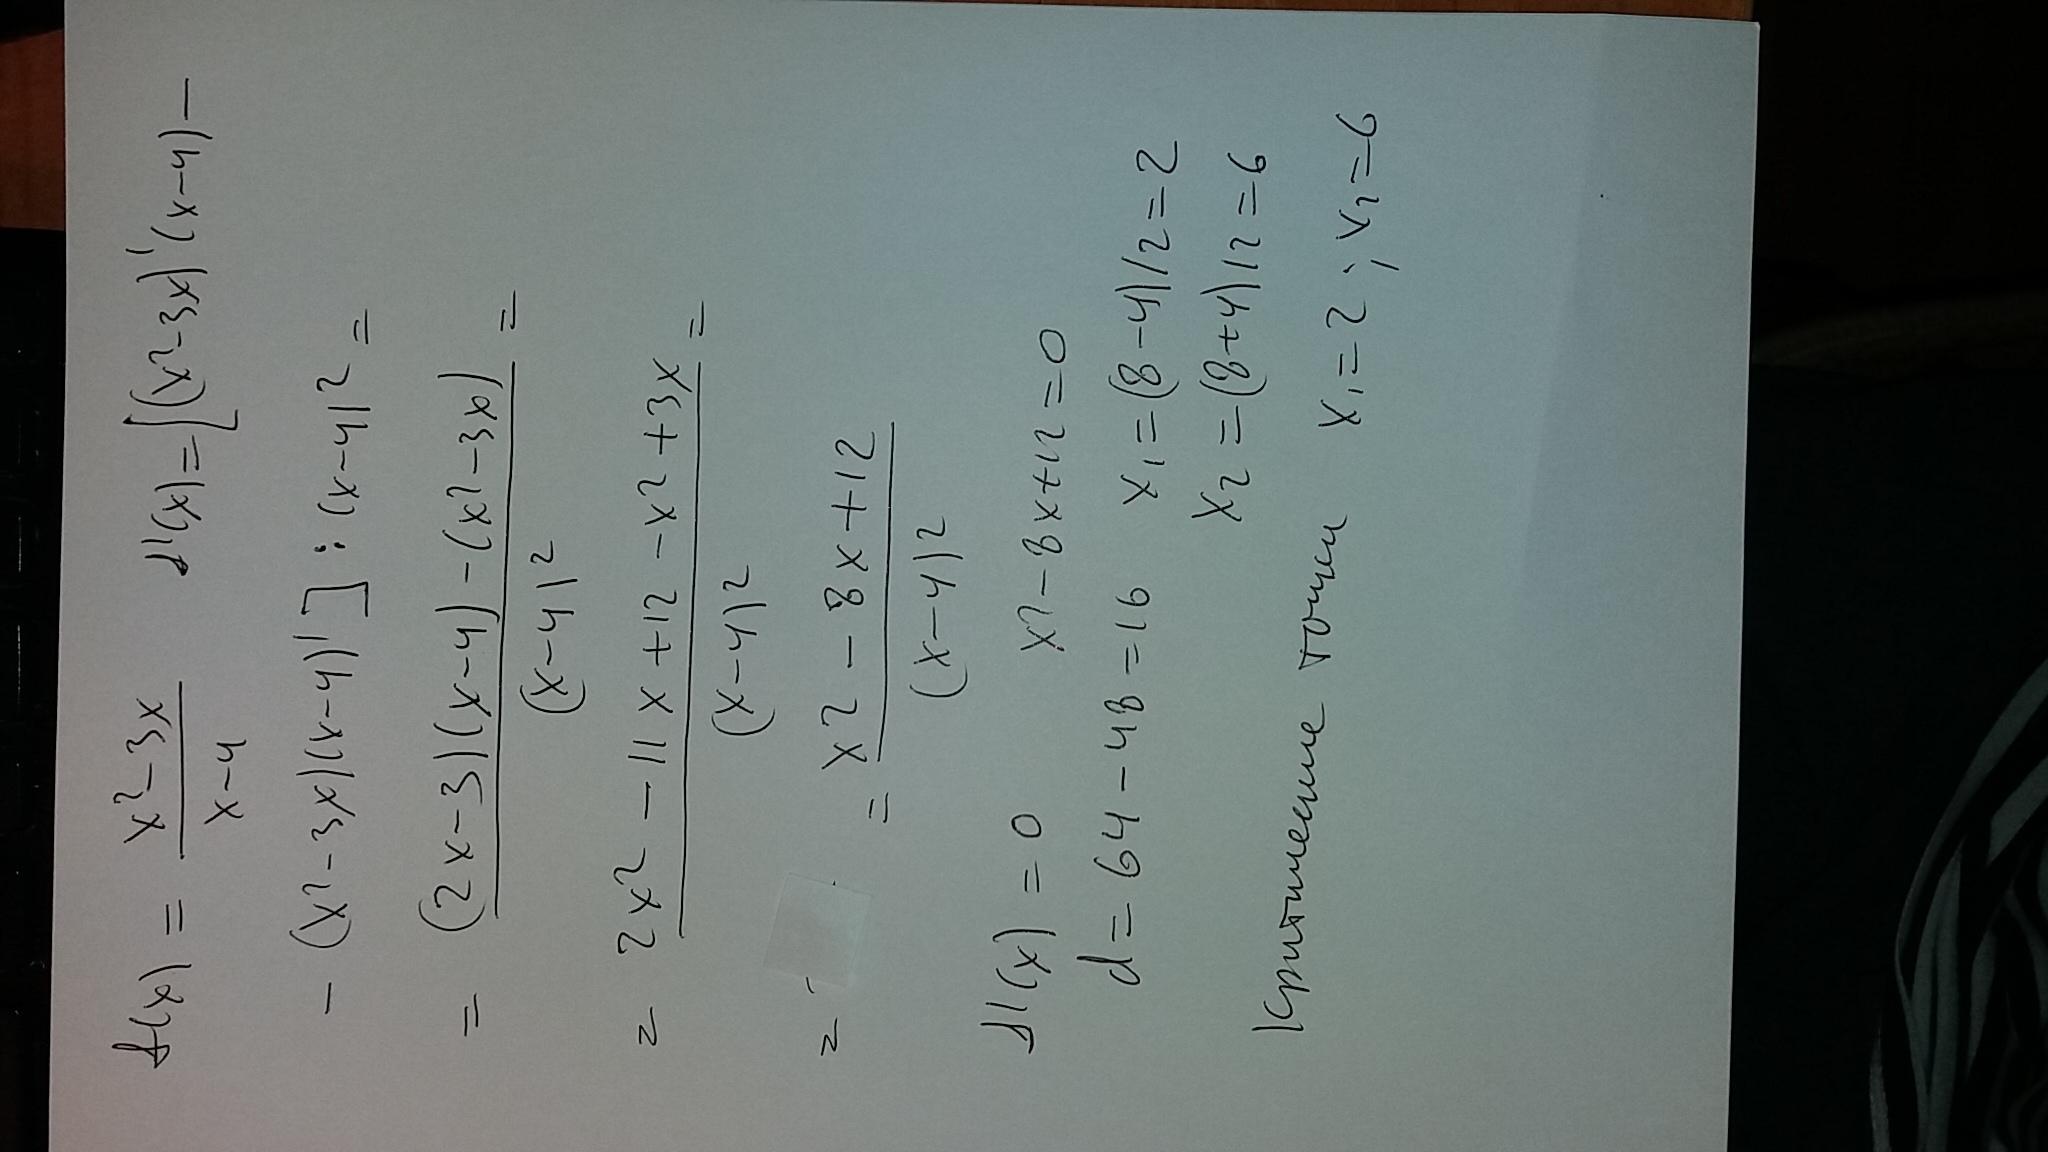 f(x) = x²-3x / x-4   f'(x)=[(x²-3x)'(x-4)-
- (x²-3x)(x-4)'] : (x-4)² =
= (2x-3)(x-4)-(x²-3x) / (x-4)² =
= 2x²-11x+12-x²+3x / (x-4)² =
= = x²-8x+12 / (x-4)²
f'(x)=0   x²-8x+12=0
d=64-48=16   x₁=(8-4)/2=2
x₂=(8+4)/2=6
Критические точки x₁=2; x₂=6